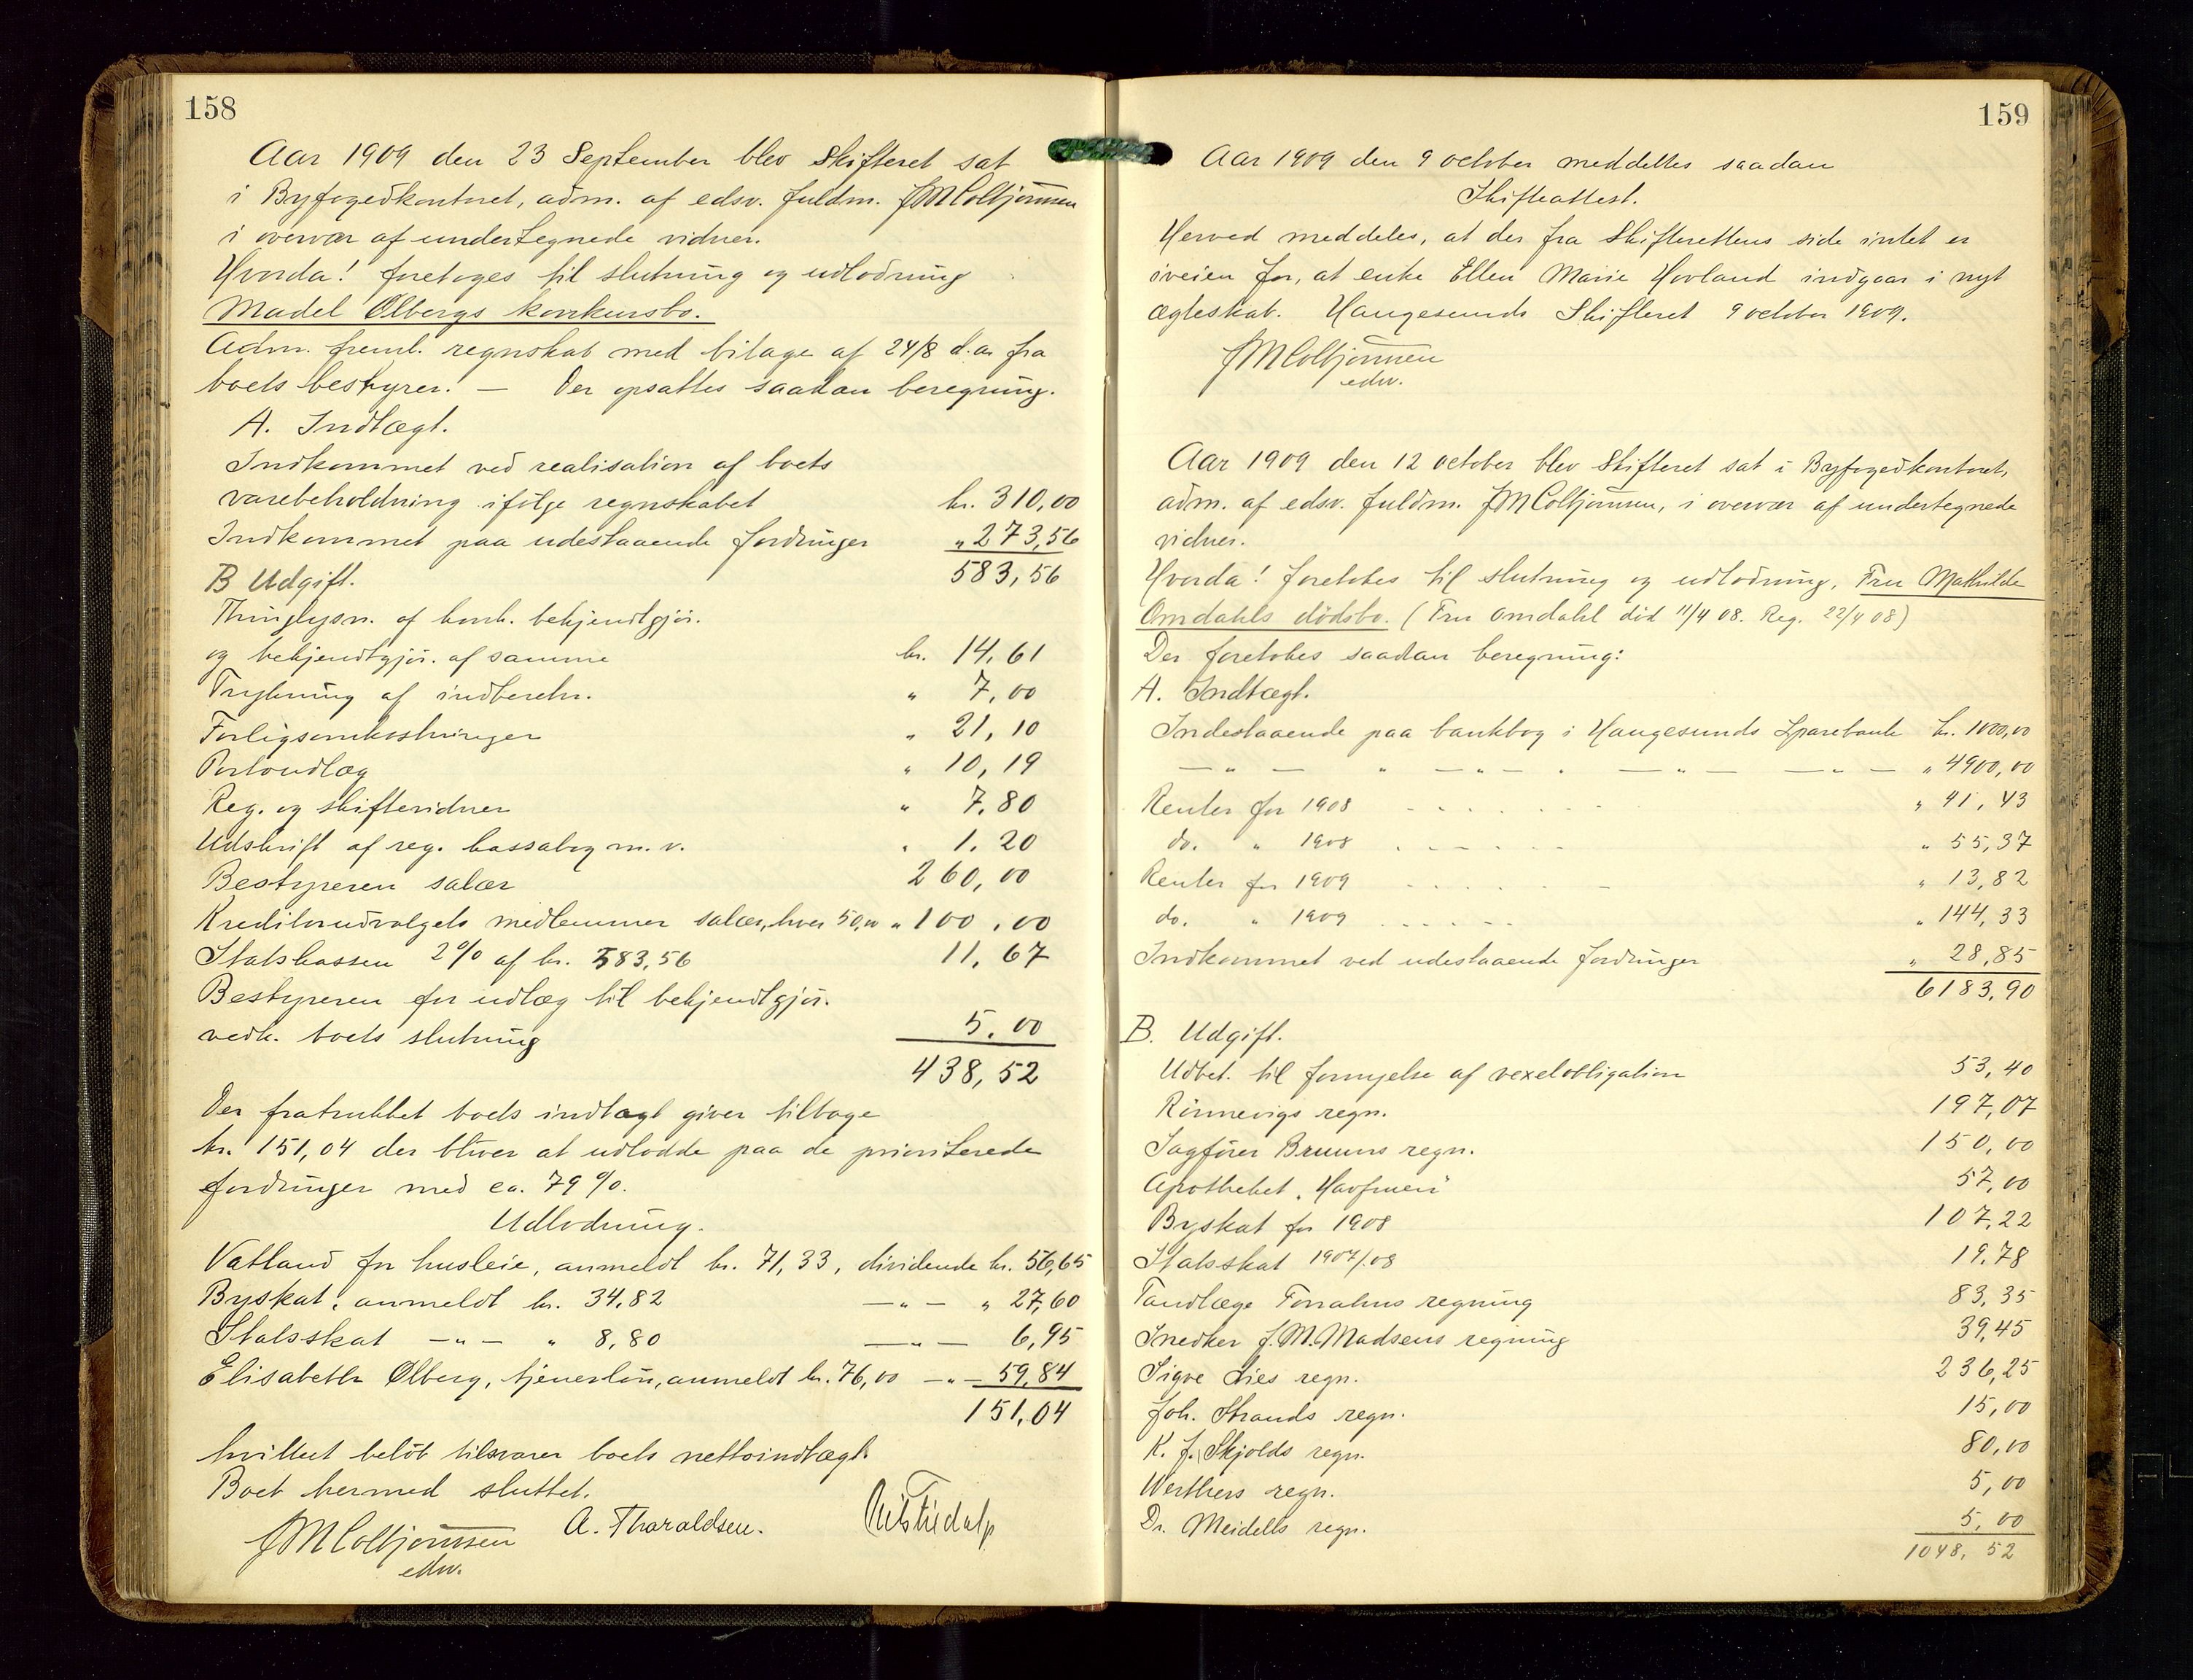 158
Aar 1909 den 23 September blev Skifteret sat
i Byfogedkontoret, adm. af edsv. fuldm. JMColbjørnsen
i overvær af undertegnede vidner.
Hvorda! foretoges til slutning og udlodning
Madel Ølbergs konkursbo.
Adm. freml. regnskab med bilage af 24/8 d.a. fra
boets bestyrer. — Der opsattes saadan beregning.
A. Indtægt.
Indkommet ved realisation af boets
varebeholdning ifølge regnskabet kr. 310,00
Indkommet paa udestaaende fordringer " 273,56
B Udgift. 583,56
Thinglysn. af konk. bekjendtgjør.
og bekjendtgjør. af samme kr. 14.61
Trykning af indberetn. " 7,00
Forligsomkostninger " 21,10
Portoudlæg " 10,19
Reg. og skiftevidner " 7.80
Udskrift af reg. kassabog m.v. " 1.20
Bestyreren salær 260,00
Kreditorudvalgets medlemmer salær, hver 50,00 " 100,00
Statskassen 2% af kr. 583,56 11,67
Bestyreren for udlæg til bekjendtgjør.
vedk. boets slutning 5.00
438,52
Der fratrukket boets indtægt giver tilbage
kr. 151,04 der bliver at udlodde paa de prioriterede
fordringer med ca. 79%.
Udlodning.
Vatland for husleie, anmeldt kr. 71,33, dividende kr. 56,65
Byskat, anmeldt kr. 34,82 — " — " 27,60
Statsskat — " — " 8,80 — " — 6,95
Elisabeth Ølberg, tjenerløn, anmeldt kr. 76,00 — " — 59,84
151,04
hvilket beløb tilsvarer boets nettoindtægt.
Boet hermed sluttet.
JMColbjørnsen A. Tharaldsen.
edsv.
159
Aar 1909 den 9 october meddeltes saadan
Skifteattest.
Herved meddeles, at der fra Skifterettens side intet er
iveien for, at enke Ellen Marie Hovland indgaar i nyt
ægteskab. Haugesunds Skifteret 9 october 1909.
JMColbjørnsen
edsv.
Aar 1909 den 12 october blev Skifteret sat i Byfogedkontoret,
adm. af edsv. fuldm. JMColbjørnsen, i overvær af undertegnede
vidner.
Hvorda! foretokes til slutning og udlodning, Fru Mathilde
Omdahls dødsbo. (Fru Omdahl død 11/4 08. Reg. 22/4 08)
Der foretokes saadan beregning:
A. Indtægt.
Indestaaende paa bankbog i Haugesunds Sparebank kr. 1000,00
— " — " — " — " — " — — " — " 4900,00
Renter for 1908 " 41,43
do. " 1908 " 55,37
Renter for 1909 " 13,82
do. " 1909 " 144,33
Indkommet ved udestaaende fordringer " 28,85
6183,90
B. Udgift.
Udbet. til fornyelse af vexelobligation 53,40
Rønnevigs regn. 197,07
Sagfører Bruuns regn. 150,00
Apotheket "Havfruen" 57,00
Byskat for 1908 107,22
Statsskat 1907/08 19.78
Tandlæge regning 83,35
Snedker J.M.Madsens regning 39,45
Sigve Lies regn. 236,25
Joh. Strands regn. 15,00
K. J. Skjolds regn. 80,00
Werthers regn. 5,00
Dr. Meidells regn. 5,00
1048,52